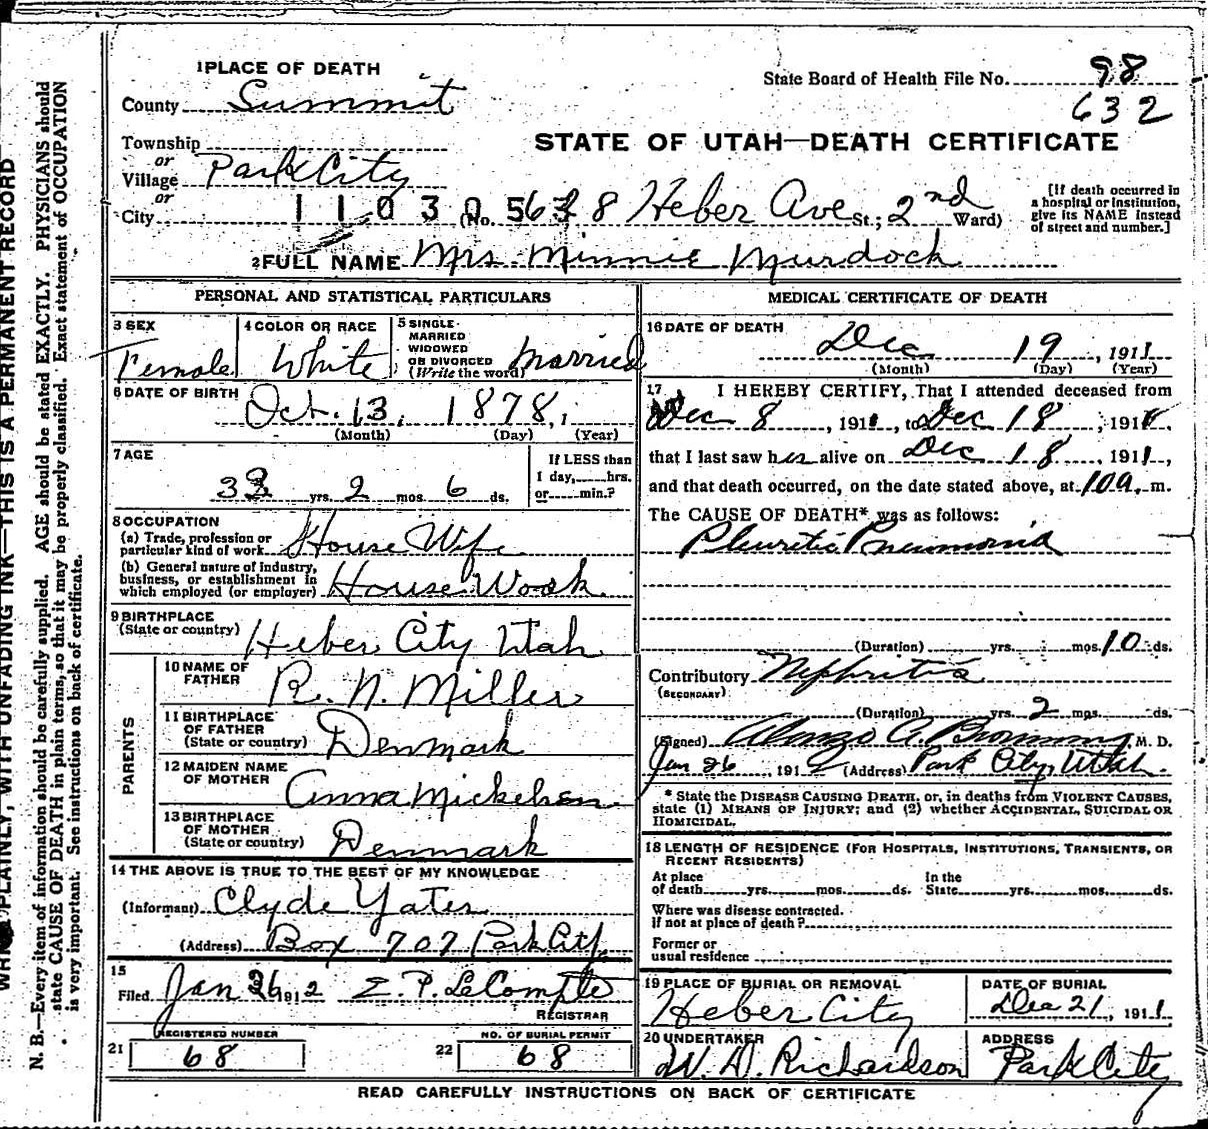 1 PLACE OF DEATH
County Summit
State Board of Health File No. 98
632
Township
or
Village Park City
or
City
STATE OF UTAH—DEATH CERTIFICATE
1 1 0 3 0 5 (No. 8 Heber Ave St.; 2nd Ward)
[If death occurred in a hospital or institution, give its NAME instead of street and number.]
2 FULL NAME Mrs Minnie Murdock
PERSONAL AND STATISTICAL PARTICULARS
3 SEX
Female
4 COLOR OR RACE
White
5 SINGLE
MARRIED
WIDOWED
OR DIVORCED
(Write the word)
Married
6 DATE OF BIRTH
Oct. 13, 1878,
(Month) (Day) (Year)
7 AGE
33 yrs. 2 mos. 6 ds.
If LESS than
1 day, hrs.
or min.?
8 OCCUPATION
(a) Trade, profession or
particular kind of work House Wife
(b) General nature of industry,
business, or establishment in
which employed (or employer) House Work
9 BIRTHPLACE
(State or country) Heber City Utah
PARENTS
10 NAME OF
FATHER R. N. Miller
11 BIRTHPLACE
OF FATHER
(State or country) Denmark
12 MAIDEN NAME
OF MOTHER Anna Mickelsen
13 BIRTHPLACE
OF MOTHER
(State or country) Denmark
14 THE ABOVE IS TRUE TO THE BEST OF MY KNOWLEDGE
(Informant) Clyde Yates
(Address) Box 707 Park City
15
Filed Jan 26 1912 E. P. LeCompte
REGISTRAR
REGISTERED NUMBER
21 68
NO. OF BURIAL PERMIT
22 68
MEDICAL CERTIFICATE OF DEATH
16 DATE OF DEATH
Dec 19, 1911
(Month) (Day) (Year)
17 I HEREBY CERTIFY, That I attended deceased from
Dec 8, 1911, to Dec 18, 191
that I last saw her alive on Dec 18, 1911,
and that death occurred, on the date stated above, at 10 a. m.
The CAUSE OF DEATH* was as follows:
Pleuritic Pneumonia
(Duration) yrs. mos. 10 ds.
Contributory Nephritis
(SECONDARY)
(Duration) yrs. 2 mos. ds.
(Signed) Alonzo A. M. D.
Jan 26, 1912 (Address) Park City, Utah.
* State the DISEASE CAUSING DEATH, or, in deaths from VIOLENT CAUSES,
state (1) MEANS OF INJURY; and (2) whether ACCIDENTAL, SUICIDAL OR
HOMICIDAL.
18 LENGTH OF RESIDENCE (FOR HOSPITALS, INSTITUTIONS, TRANSIENTS, OR
RECENT RESIDENTS)
At place
of death yrs. mos. ds.
In the
State yrs. mos. ds.
Where was disease contracted.
If not at place of death?
Former or
usual residence
19 PLACE OF BURIAL OR REMOVAL
Heber City
DATE OF BURIAL
Dec 21, 1911
20 UNDERTAKER
W. D. Richardson
ADDRESS
Park City
READ CAREFULLY INSTRUCTIONS ON BACK OF CERTIFICATE
PLAINLY, WITH UNFADING INK—THIS IS A PERMANENT RECORD
N. B.—Every item of information should be carefully supplied. AGE should be stated EXACTLY. PHYSICIANS should
state CAUSE OF DEATH in plain terms, so that it may be properly classified. Exact statement of OCCUPATION
is very important. See instructions on back of certificate.